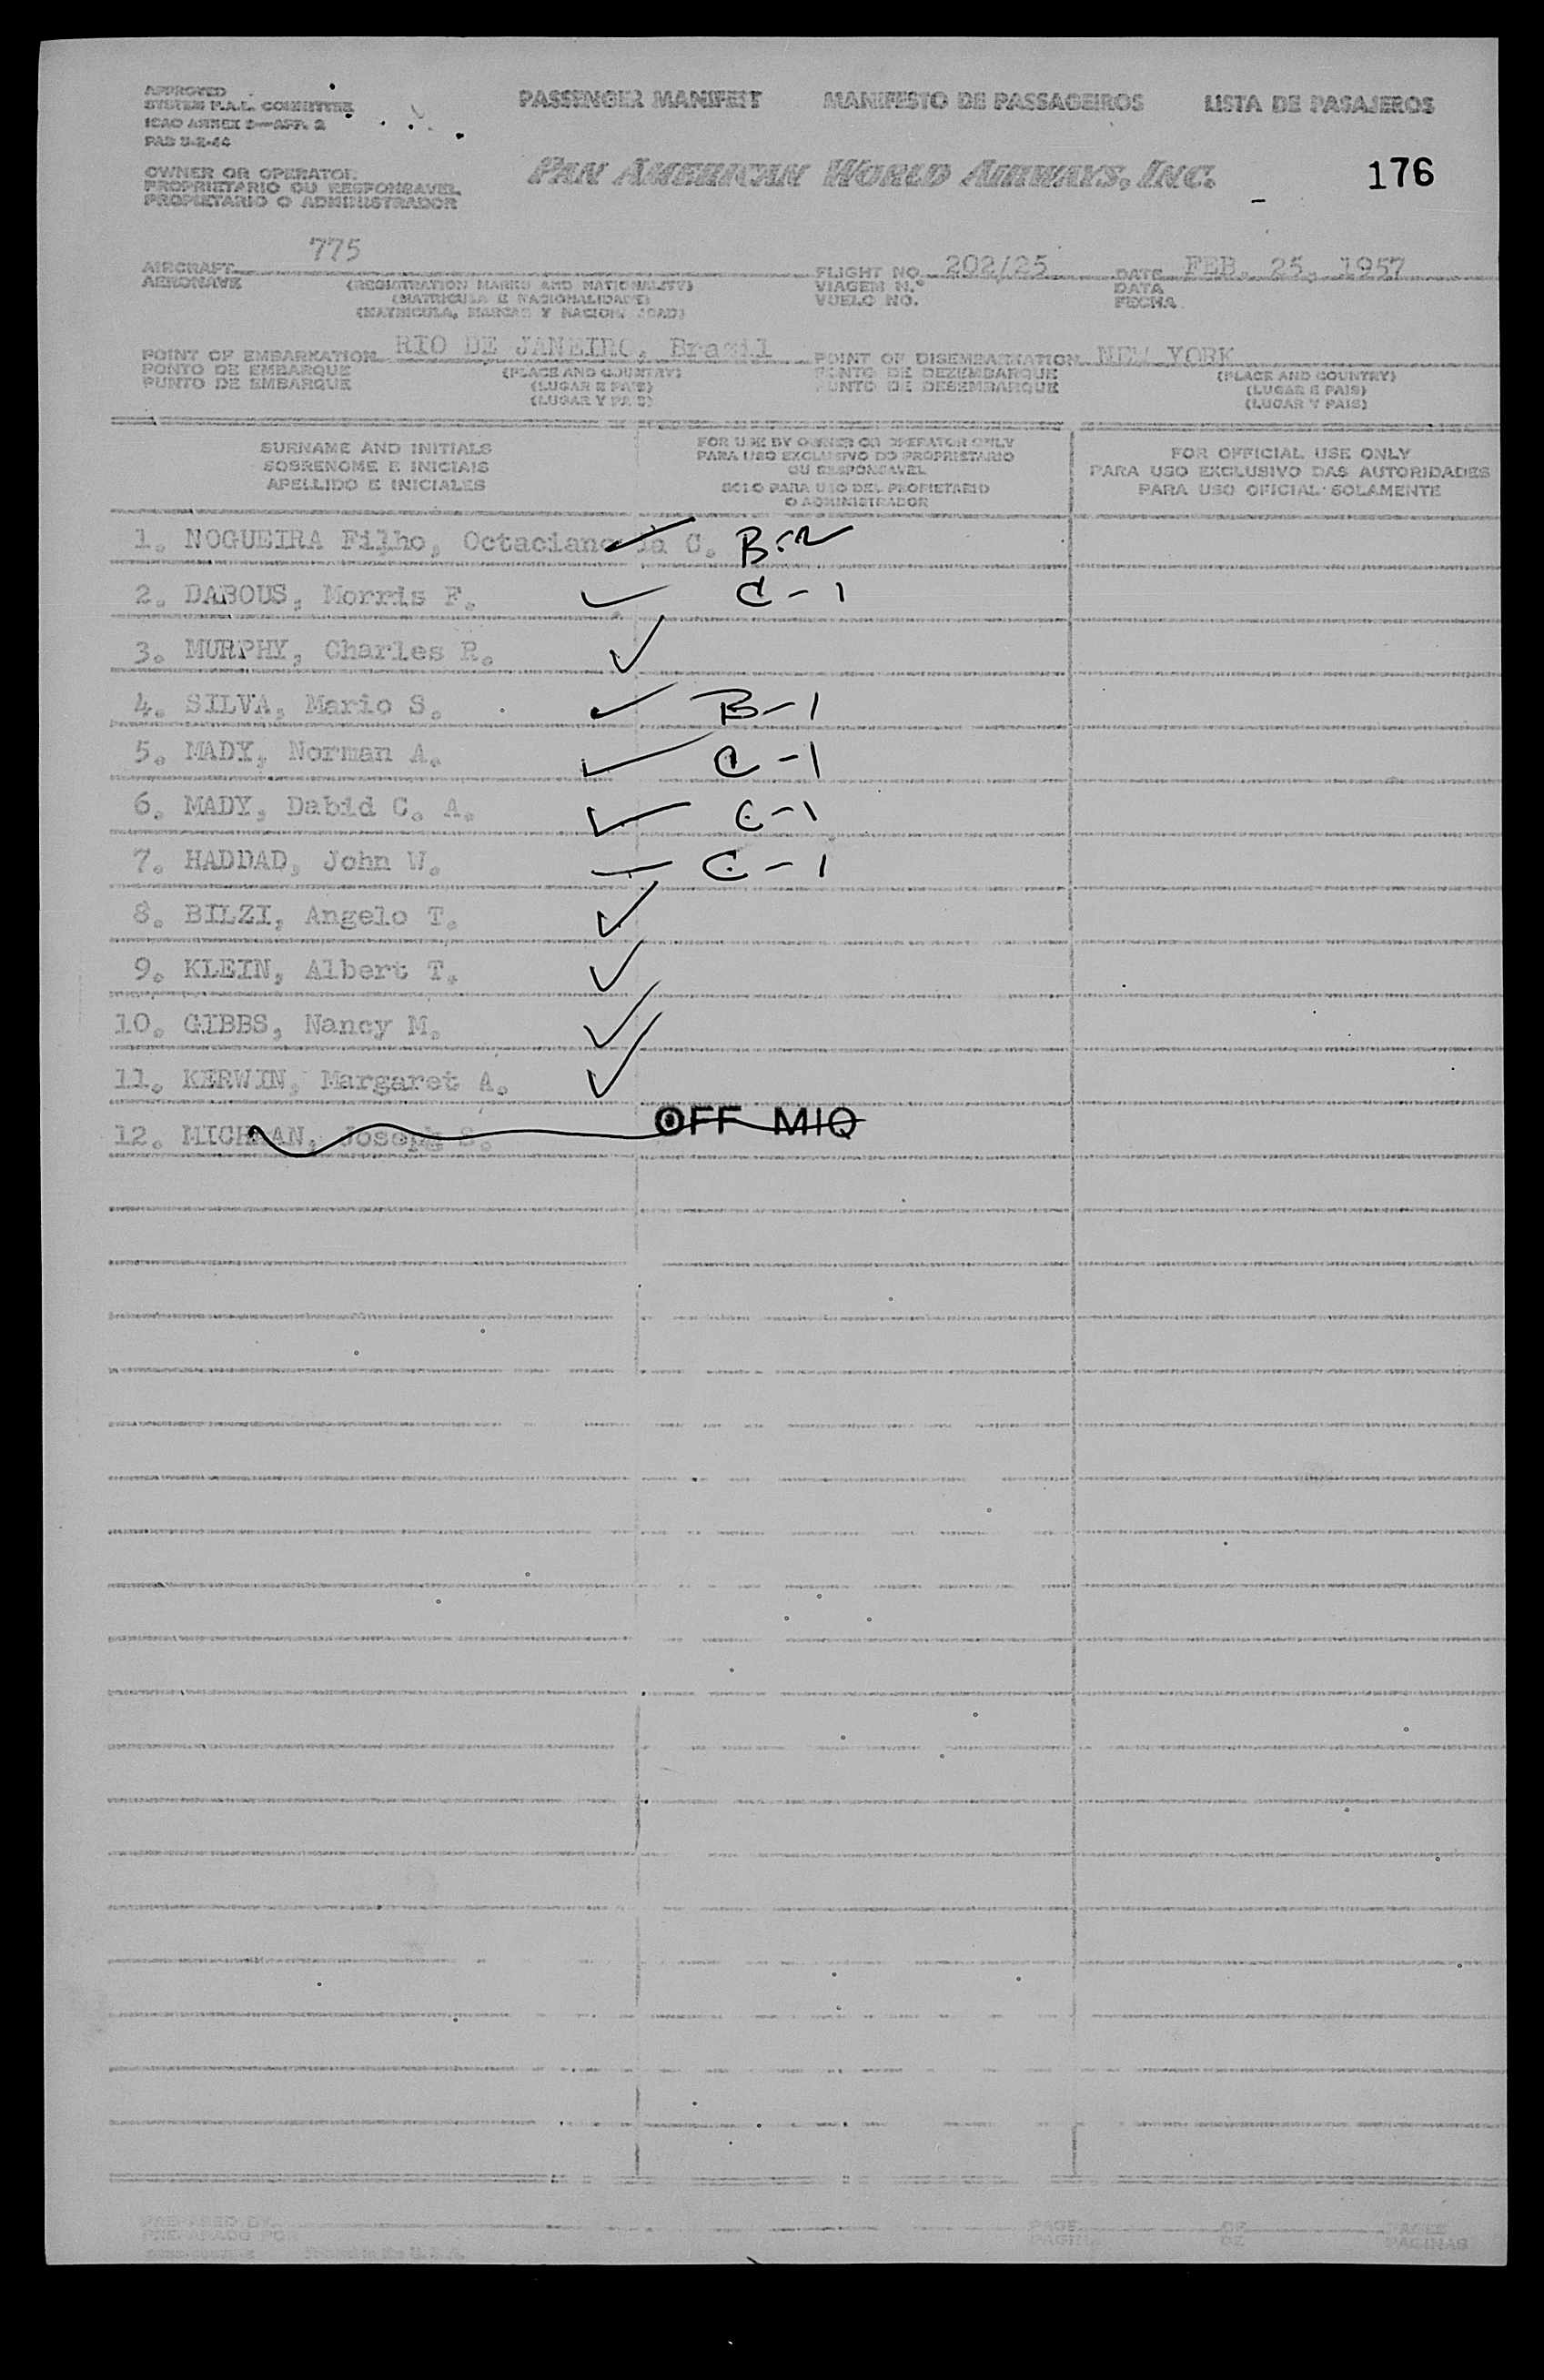 APPROVED
SYSTEM F.A.L. COMMITTEE
ICAO ANNEX 9—APP. 2
PASSENGER MANIFEST MANIFESTO DE PASSAGEIROS LISTA DE PASAJEROS
OWNER OR OPERATOR
PROPRIETARIO OU RESPONSAVEL
PROPIETARIO O ADMINISTRADOR
PAN AMERICAN WORLD AIRWAYS, INC.
176
AIRCRAFT 775 FLIGHT NO. 202/25 DATE FEB. 25, 1957
AERONAVE (REGISTRATION MARKS AND NATIONALITY) VIAGEM N.º DATA
(MATRICULA E NACIONALIDADE) VUELO NO. FECHA
(MATRICULA, MARCAS Y NACIONALIDAD)
POINT OF EMBARKATION RIO DE JANEIRO, Brazil POINT OF DISEMBARKATION NEW YORK
PONTO DE EMBARQUE (PLACE AND COUNTRY) PONTO DE DEZEMBARQUE (PLACE AND COUNTRY)
PUNTO DE EMBARQUE (LUGAR E PAIS) PUNTO DE DESEMBARQUE (LUGAR E PAIS)
(LUGAR Y PAIS) (LUGAR Y PAIS)
SURNAME AND INITIALS
SOBRENOME E INICIAIS
APELLIDO E INICIALES
FOR USE BY OWNER OR OPERATOR ONLY
PARA USO EXCLUSIVO DO PROPRIETARIO
OU RESPONSAVEL
SOLO PARA USO DEL PROPIETARIO
O ADMINISTRADOR
FOR OFFICIAL USE ONLY
PARA USO EXCLUSIVO DAS AUTORIDADES
PARA USO OFICIAL SOLAMENTE
1. NOGUEIRA Filho, Octaciano da C. ✓ B-2
2. DABOUS, Morris F. ✓ C-1
3. MURPHY, Charles R. ✓
4. SILVA, Mario S. ✓ B-1
5. MADY, Norman A. ✓ C-1
6. MADY, Dabid C. A. ✓ C-1
7. HADDAD, John W. C-1
8. BILZI, Angelo T. ✓
9. KLEIN, Albert T. ✓
10. GIBBS, Nancy M. ✓
11. KERWIN, Margaret A. ✓
12. Joseph S. OFF MIQ
PREPARED BY PAGE OF PAGES
PREPARADO POR PAGINA DE PAGINAS